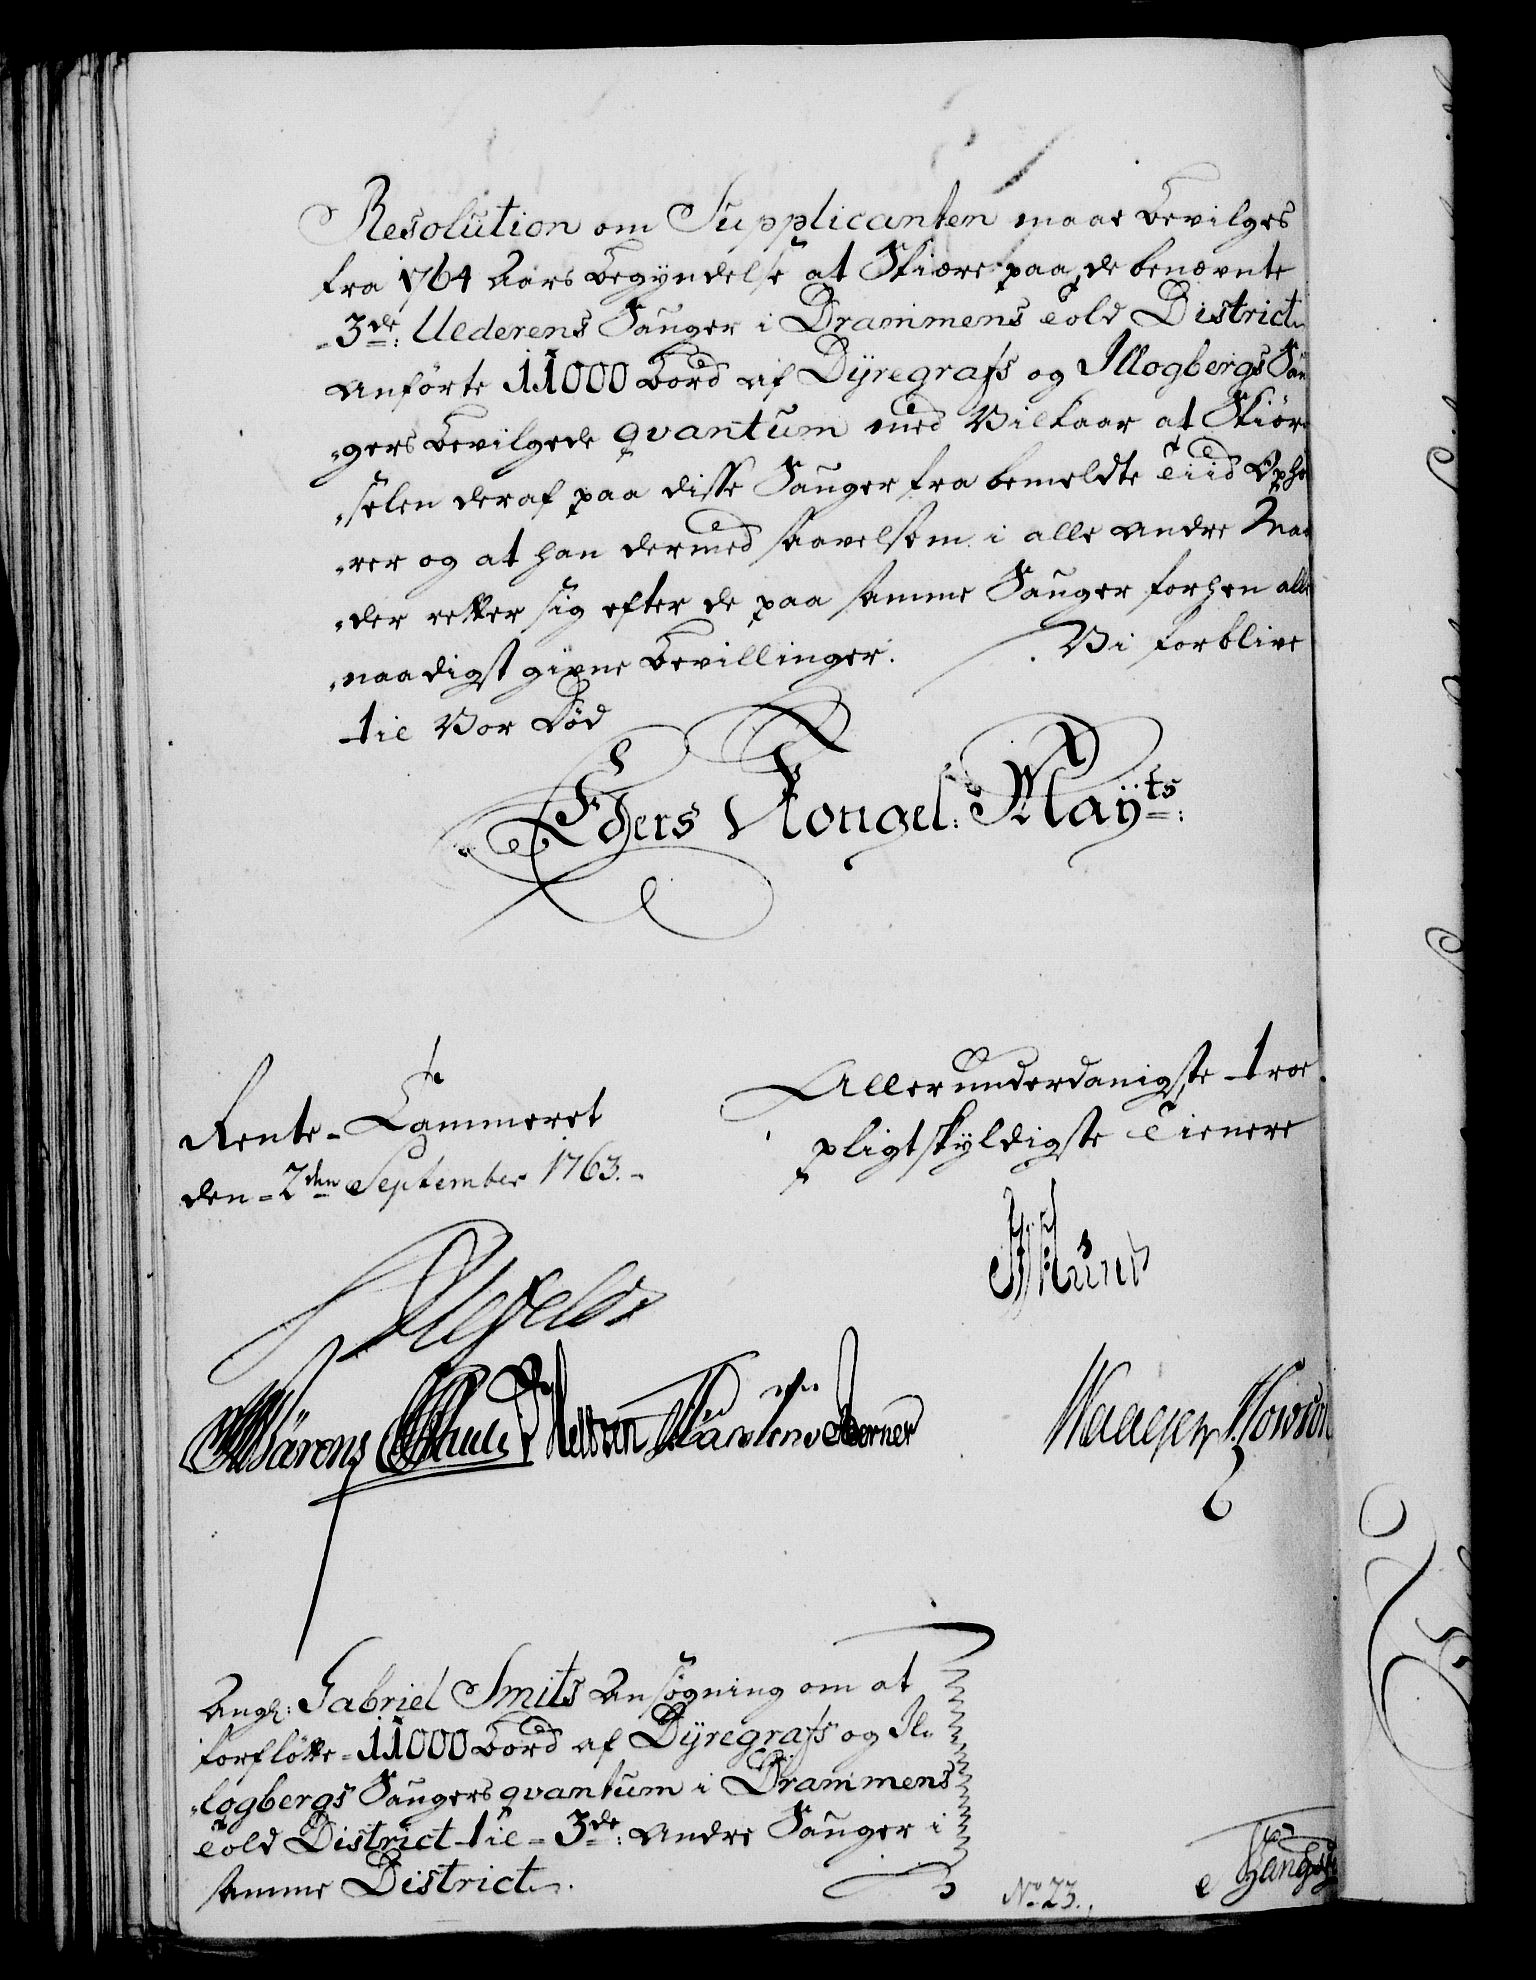 Resolution om Supplicanten maae bevilges
fra 1764 Aars Begyndelse at Skiære paa de benævnte
-3de: Uederens Sauger i Drammens Told District
anførte 11000 Bord af Dyregrafs og Illogbergs Sau
-gers bevilgede qvantum med Vilkaar at Skiør
-selen deraf paa disse Sauger fra bemeldte Tiid Ophø
-rer og at han dermed saavelsom i alle andre Maa
-der retter sig efter de paa samme Sauger forhen aller
-naadigst givne Bevillinger. Vi forblive
til Vor Død
Eders Kongel: Mayts:
Allerunderdanigste troe
Rente-Cammeret
pligtskyldigste Tienere
den-2den September 1763.-
Ang: Gabriel Smits Ansøgning om at
forflötte-11000 Bord af Dyregrafs og Il-
-logbergs Saugers qvantum i Drammens
Told District til-3de: andre Sauger i
samme District.
No 23.